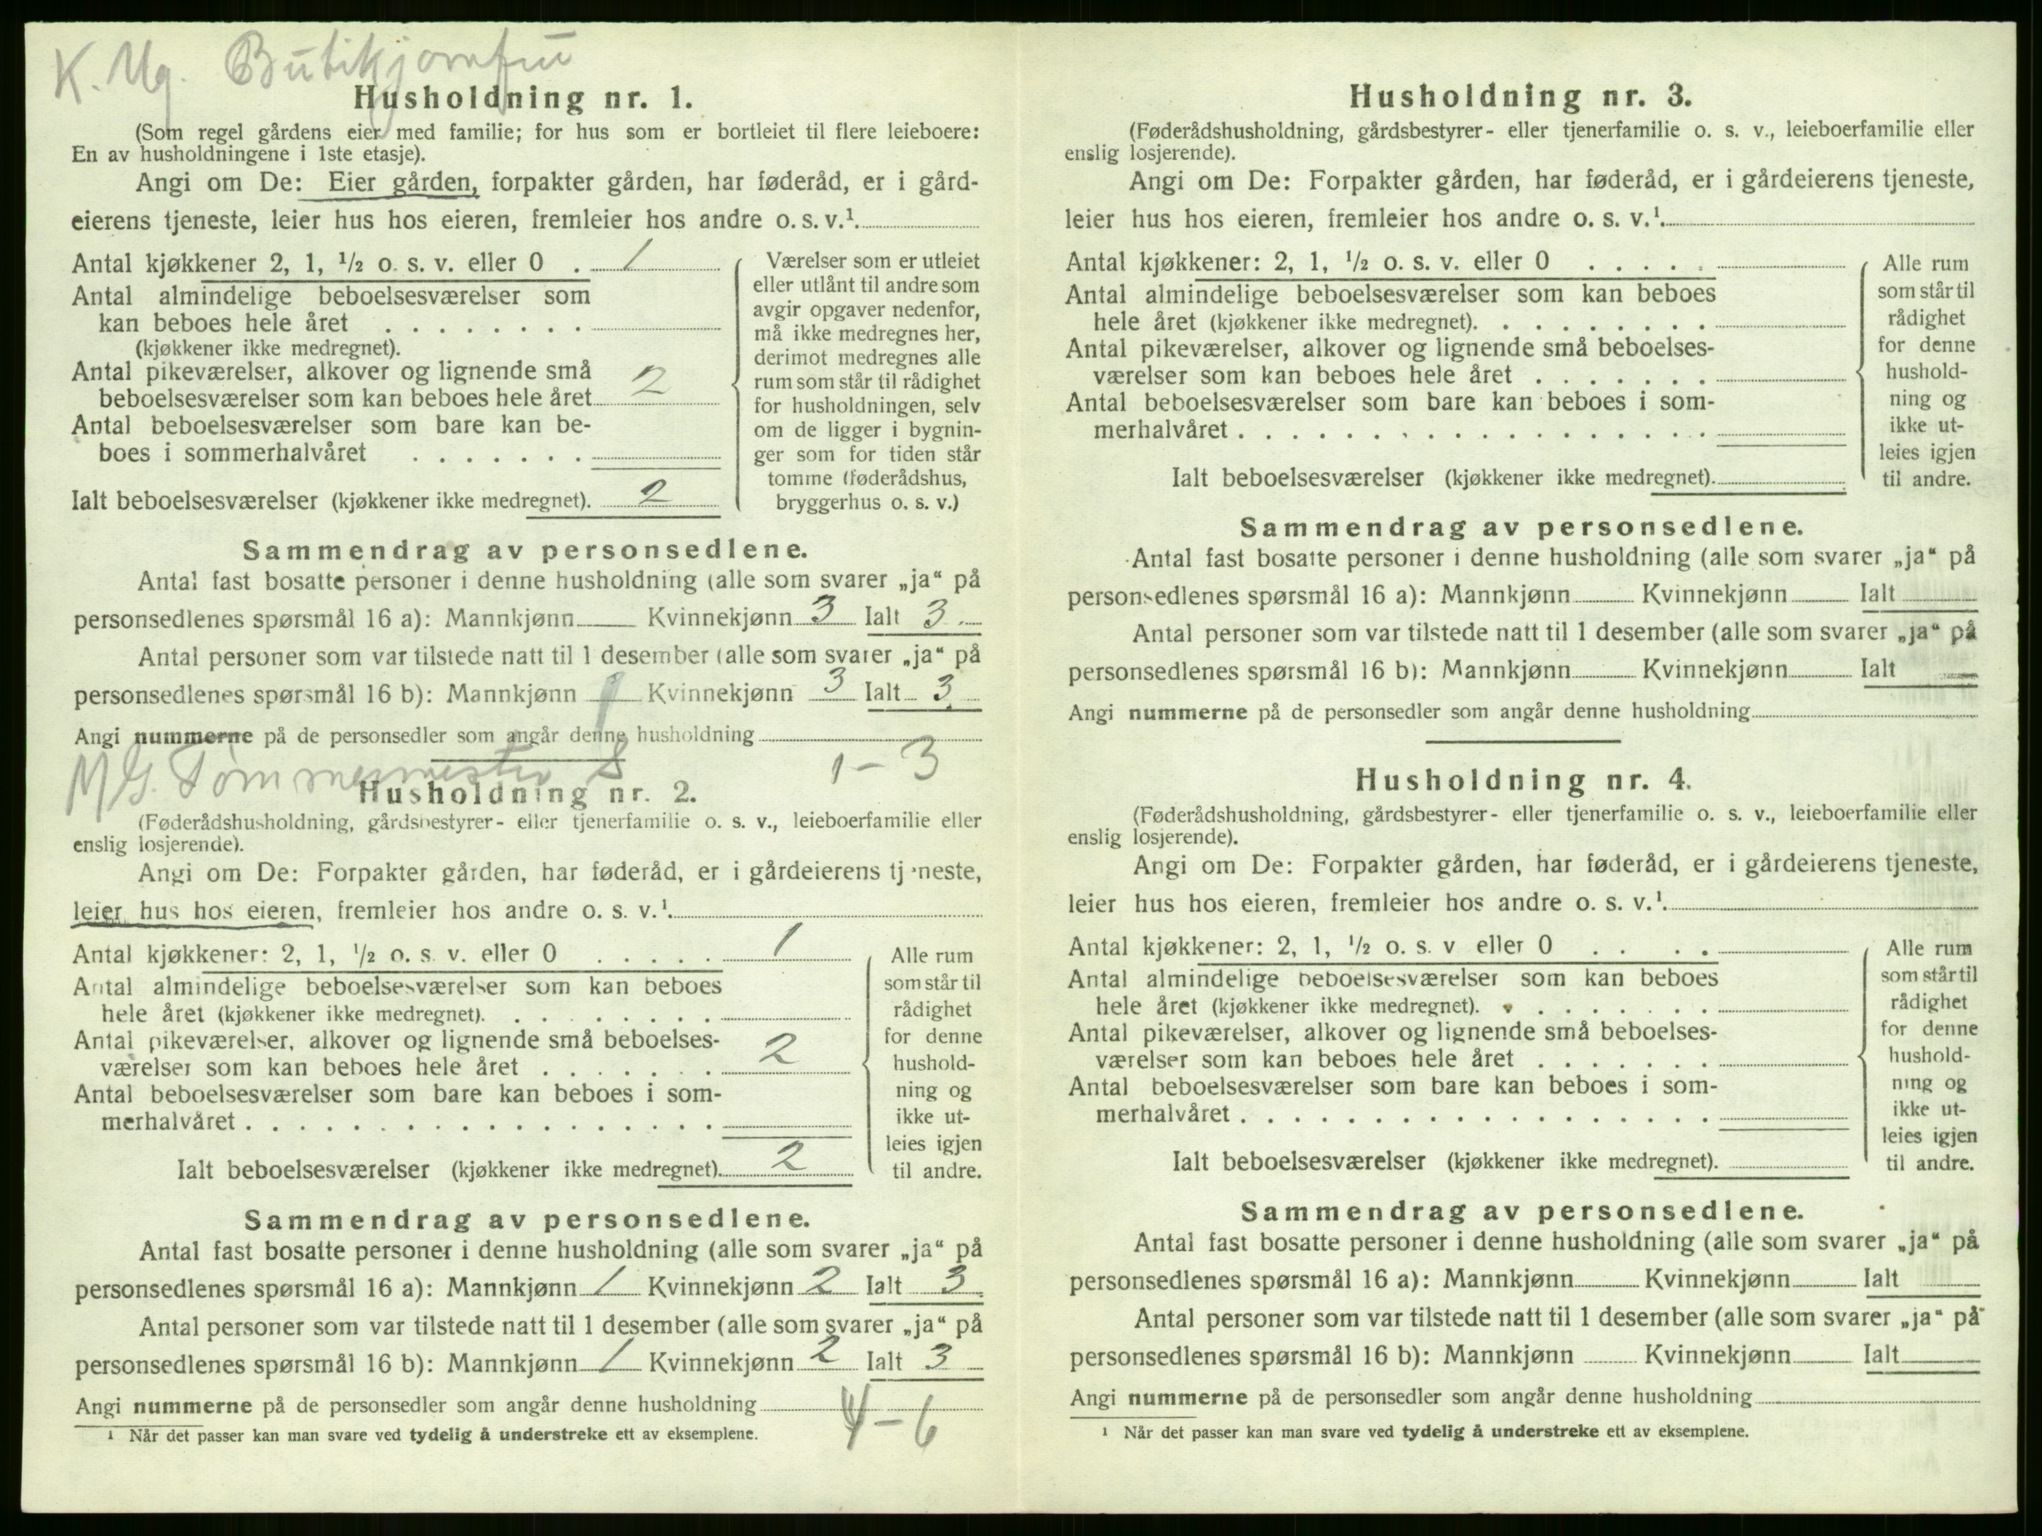 K. Ug. Butikjomfru
Husholdning nr. 1.
(Som regel gårdens eier med familie; for hus som er bortleiet til flere leieboere:
En av husholdningene i 1ste etasje).
Angi om De: Eier gården, forpakter gården, har føderåd, er i gård-
eierens tjeneste, leier hus hos eieren, fremleier hos andre o. s. v.¹
Antal kjøkkener 2, 1, ½ o. s. v. eller 0 . 1
Antal almindelige beboelsesværelser som
kan beboes hele året . . . . . . . .
(kjøkkener ikke medregnet).
Antal pikeværelser, alkover og lignende små
beboelsesværelser som kan beboes hele året 2
Antal beboelsesværelser som bare kan be-
boes i sommerhalvåret . . . . . . .
Ialt beboelsesværelser (kjøkkener ikke medregnet). 2
Værelser som er utleiet
eller utlånt til andre som
avgir opgaver nedenfor,
må ikke medregnes her,
derimot medregnes alle
rum som står til rådighet
for husholdningen, selv
om de ligger i bygnin-
ger som for tiden står
tomme (føderådshus,
bryggerhus o. s. v.)
Sammendrag av personsedlene.
Antal fast bosatte personer i denne husholdning (alle som svarer „ja“ på
personsedlenes spørsmål 16 a): Mannkjønn Kvinnekjønn 3 Ialt 3
Antal personer som var tilstede natt til 1 desember (alle som svarer „ja“ på
personsedlenes spørsmål 16 b): Mannkjønn Kvinnekjønn 3 Ialt 3
Angi nummerne på de personsedler som angår denne husholdning
1 - 3
M G. Tømmermester S
Husholdning nr. 2.
(Føderådshusholdning, gårdsbestyrer- eller tjenerfamilie o. s. v., leieboerfamilie eller
enslig losjerende).
Angi om De: Forpakter gården, har føderåd, er i gårdeierens tjeneste,
leier hus hos eieren, fremleier hos andre o. s. v.¹
Antal kjøkkener: 2, 1, ½ o. s. v. eller 0 . . . . . 1
Antal almindelige beboelsesværelser som kan beboes
hele året (kjøkkener ikke medregnet). . . . . . . . .
Antal pikeværelser, alkover og lignende små beboelses-
værelser som kan beboes hele året . . . . . . . 2
Antal beboelsesværelser som bare kan beboes i som-
merhalvåret . . . . . . . . . . . . . . . . . .
Ialt beboelsesværelser (kjøkkener ikke medregnet). 2
Alle rum
som står til
rådighet
for denne
hushold-
ning og
ikke ut-
leies igjen
til andre.
Sammendrag av personsedlene.
Antal fast bosatte personer i denne husholdning (alle som svarer „ja“ på
personsedlenes spørsmål 16 a): Mannkjønn 1 Kvinnekjønn 2 Ialt 3
Antal personer som var tilstede natt til 1 desember (alle som svarer „ja“ på
personsedlenes spørsmål 16 b): Mannkjønn 1 Kvinnekjønn 2 Ialt 3
Angi nummerne på de personsedler som angår denne husholdning 4 - 6
¹ Når det passer kan man svare ved tydelig å understreke ett av eksemplene.
Husholdning nr. 3.
(Føderådshusholdning, gårdsbestyrer- eller tjenerfamilie o. s. v., leieboerfamilie eller
enslig losjerende).
Angi om De: Forpakter gården, har føderåd, er i gårdeierens tjeneste,
leier hus hos eieren, fremleier hos andre o. s. v.¹
Antal kjøkkener: 2, 1, ½ o. s. v. eller 0 . . . . .
Antal almindelige beboelsesværelser som kan beboes
hele året (kjøkkener ikke medregnet). . . . . . . . .
Antal pikeværelser, alkover og lignende små beboelses-
værelser som kan beboes hele året . . . . . . .
Antal beboelsesværelser som bare kan beboes i som-
merhalvåret . . . . . . . . . . . . . . . . . .
Ialt beboelsesværelser (kjøkkener ikke medregnet).
Alle rum
som står til
rådighet
for denne
hushold-
ning og
ikke ut-
leies igjen
til andre.
Sammendrag av personsedlene.
Antal fast bosatte personer i denne husholdning (alle som svarer „ja“ på
personsedlenes spørsmål 16 a): Mannkjønn Kvinnekjønn Ialt
Antal personer som var tilstede natt til 1 desember (alle som svarer „ja“ på
personsedlenes spørsmål 16 b): Mannkjønn Kvinnekjønn Ialt
Angi nummerne på de personsedler som angår denne husholdning
Husholdning nr. 4.
(Føderådshusholdning, gårdsbestyrer- eller tjenerfamilie o. s. v., leieboerfamilie eller
enslig losjerende).
Angi om De: Forpakter gården, har føderåd, er i gårdeierens tjeneste,
leier hus hos eieren, fremleier hos andre o. s. v.¹
Antal kjøkkener: 2, 1, ½ o. s. v eller 0 . . . .
Antal almindelige beboelsesværelser som kan beboes
hele året (kjøkkener ikke medregnet). . . . . . . . .
Antal pikeværelser, alkover og lignende små beboelses-
værelser som kan beboes hele året . . . . . . .
Antal beboelsesværelser som bare kan beboes i som-
merhalvåret . . . . . . . . . . . . . . . . . .
Ialt beboelsesværelser (kjøkkener ikke medregnet).
Alle rum
som står til
rådighet
for denne
hushold-
ning og
ikke ut-
leies igjen
til andre.
Sammendrag av personsedlene.
Antal fast bosatte personer i denne husholdning (alle som svarer „ja“ på
personsedlenes spørsmål 16 a): Mannkjønn Kvinnekjønn Ialt
Antal personer som var tilstede natt til 1 desember (alle som svarer „ja“ på
personsedlenes spørsmål 16 b): Mannkjønn Kvinnekjønn Ialt
Angi nummerne på de personsedler som angår denne husholdning
¹ Når det passer kan man svare ved tydelig å understreke ett av eksemplene.